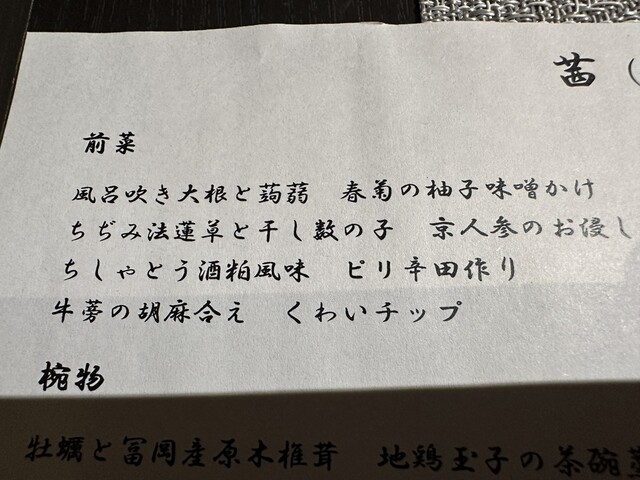 茜（
前菜
風呂吹き大根と蒟蒻　春菊の柚子味噌かけ
ちぢみ法蓮草と干し数の子　京人参のお浸し
ちしゃとう酒粕風味　ピリ辛田作り
牛蒡の胡麻合え　くわいチップ
椀物
牡蠣と冨岡産原木椎茸　地鶏玉子の茶碗蒸